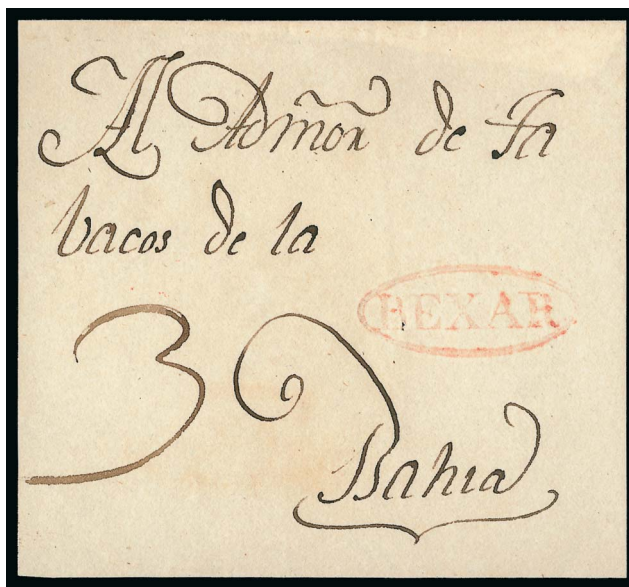 Al Admõn de Ta
bacos de la
BEXAR
3
Bahia